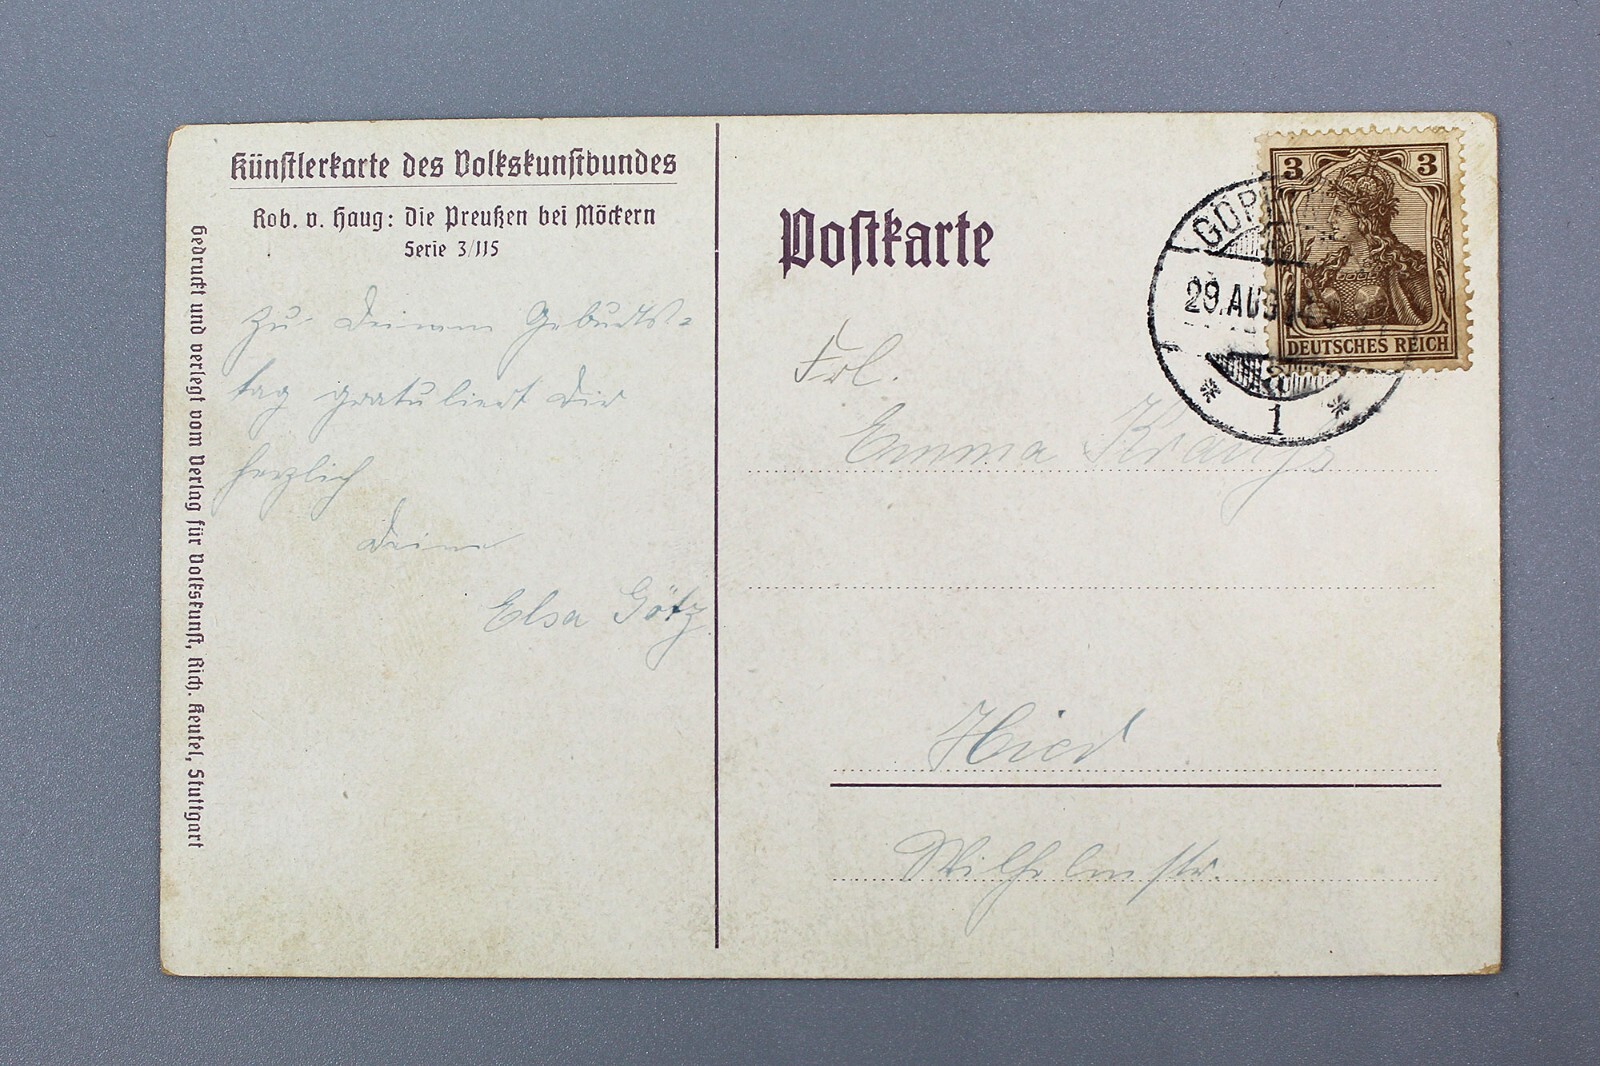 Künstlerkarte des Volkskunstbundes
Rob. v. Haug: Die Preußen bei Möckern
Serie 3/115
Gedruckt und verlegt vom Verlag für Volkskunst, Rich. Keutel, Stuttgart
Zu Deinem Geburts-
tag gratuliert Dir
herzlich
Deine
Elsa Götz
Postkarte
3 3
DEUTSCHES REICH
29. AUG
1
Frl.
Emma
Wilhelmstr.